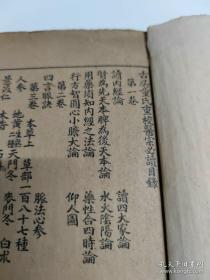 古吳童氏重校醫宗必讀目錄
第一卷
讀內經論 讀四大家論
腎為先天本脾為後天本論 水火陰陽論
用藥須知內經之法論 藥性合四時論
行方智圓心小膽大論 仰人圖
第二卷
四言脉訣 脉法心參
第三卷
本草上 草部一百八十七種
人參 天門冬 麥門冬 白朮